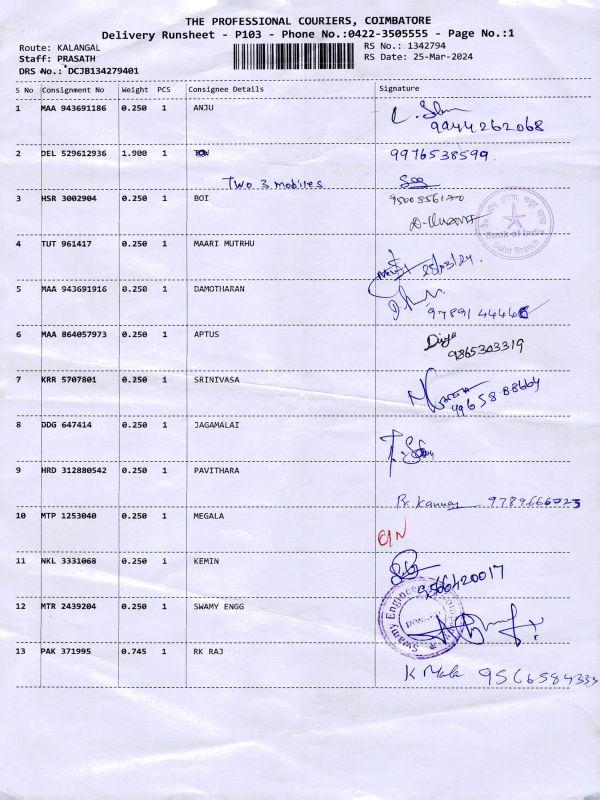 THE PROFESSIONAL COURIERS, COIMBATORE
Delivery Runsheet - P103 - Phone No.:0422-3505555 - Page No.:1
Route: KALANGAL
Staff: PRASATH
DRS No.: DCJB134279401
RS No.: 1342794
RS Date: 25-Mar-2024
S No Consignment No Weight PCS Consignee Details Signature
1 MAA 943691186 0.250 1 ANJU
9944262068
2 DEL 529612936 1.900 1 9976538599
Two 3 mobiles
3 HSR 3002904 0.250 1 BOI
Bank of India
Sulur Branch
4 TUT 961417 0.250 1 MAARI MUTRHU
25/03/24.
5 MAA 943691916 0.250 1 DAMOTHARAN
6 MAA 864057973 0.250 1 APTUS
Divya
9365303319
7 KRR 5707801 0.250 1 SRINIVASA
8 DDG 647414 0.250 1 JAGAMALAI
9 HRD 312880542 0.250 1 PAVITHARA
Kannan
10 MTP 1253040 0.250 1 MEGALA
11 NKL 3331068 0.250 1 KEMIN
9566420017
12 MTR 2439204 0.250 1 SWAMY ENGG
Swamy Engineering
13 PAK 371995 0.745 1 RK RAJ
K Mala 9566584333